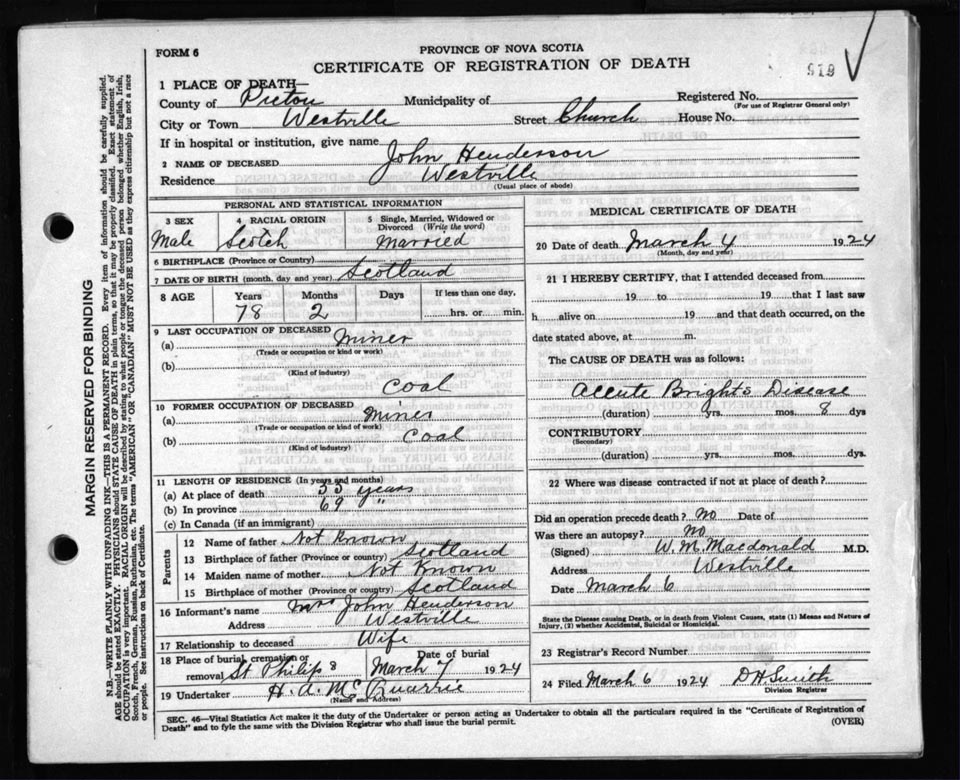 FORM 6
PROVINCE OF NOVA SCOTIA
CERTIFICATE OF REGISTRATION OF DEATH
919
1 PLACE OF DEATH—
County of Pictou Municipality of Registered No.
(For use of Registrar General only)
City or Town Westville Street Church House No.
If in hospital or institution, give name
2 NAME OF DECEASED John Henderson
Residence Westville
(Usual place of abode)
PERSONAL AND STATISTICAL INFORMATION
3 SEX 4 RACIAL ORIGIN 5 Single, Married, Widowed or Divorced (Write the word)
Male Scotch Married
6 BIRTHPLACE (Province or Country) Scotland
7 DATE OF BIRTH (month, day and year)
8 AGE Years Months Days If less than one day,
78 2 hrs. or min.
9 LAST OCCUPATION OF DECEASED
(a) Miner
(Trade or occupation or kind or work)
(b)
(Kind of industry)
Coal
10 FORMER OCCUPATION OF DECEASED
(a) Miner
(Trade or occupation or kind of work)
(b) Coal
(Kind of industry)
11 LENGTH OF RESIDENCE (In years and months)
(a) At place of death 55 years
(b) In province 69 "
(c) In Canada (if an immigrant)
Parents
12 Name of father Not Known
13 Birthplace of father (Province or country) Scotland
14 Maiden name of mother Not Known
15 Birthplace of mother (Province or country) Scotland
16 Informant's name Mrs John Henderson
Address Westville
17 Relationship to deceased Wife
18 Place of burial, cremation or removal St Philips Date of burial March 7 1924
19 Undertaker H. A. McQuarrie
(Name and Address)
MEDICAL CERTIFICATE OF DEATH
20 Date of death March 4 1924
(Month, day and year)
21 I HEREBY CERTIFY, that I attended deceased from
19 to 19 that I last saw
h alive on 19 and that death occurred, on
date stated above, at m.
The CAUSE OF DEATH was as follows:
Accute Brights Disease
(duration) yrs. mos. 8 dys
CONTRIBUTORY
(Secondary)
(duration) yrs. mos. dys.
22 Where was disease contracted if not at place of death?
Did an operation precede death? No Date of
Was there an autopsy? No
(Signed) W. M. Macdonald M.D.
Address Westville
Date March 6
State the Disease causing Death, or in death from Violent Causes, state (1) Means and Nature of
Injury, (2) whether Accidental, Suicidal or Homicidal.
23 Registrar's Record Number
24 Filed March 6 1924 D H Smith
Division Registrar
SEC. 46—Vital Statistics Act makes it the duty of the Undertaker or person acting as Undertaker to obtain all the particulars required in the "Certificate of Registration of
Death" and to fyle the same with the Division Registrar who shall issue the burial permit. (OVER)
MARGIN RESERVED FOR BINDING
N.B.—WRITE PLAINLY WITH UNFADING INK—THIS IS A PERMANENT RECORD. Every item of information should be carefully supplied.
AGE should be stated EXACTLY. PHYSICIANS should STATE CAUSE OF DEATH in plain terms, so that it may be properly classified. Exact statement of
OCCUPATION is very important. RACIAL ORIGIN will be described by stating to what people or tongue the deceased person belonged whether English, Irish,
Scotch, French, German, Russian, Ruthenian, etc. The terms "AMERICAN" OR "CANADIAN" MUST NOT BE USED as they express citizenship but not a race
or people. See instructions on back of Certificate.